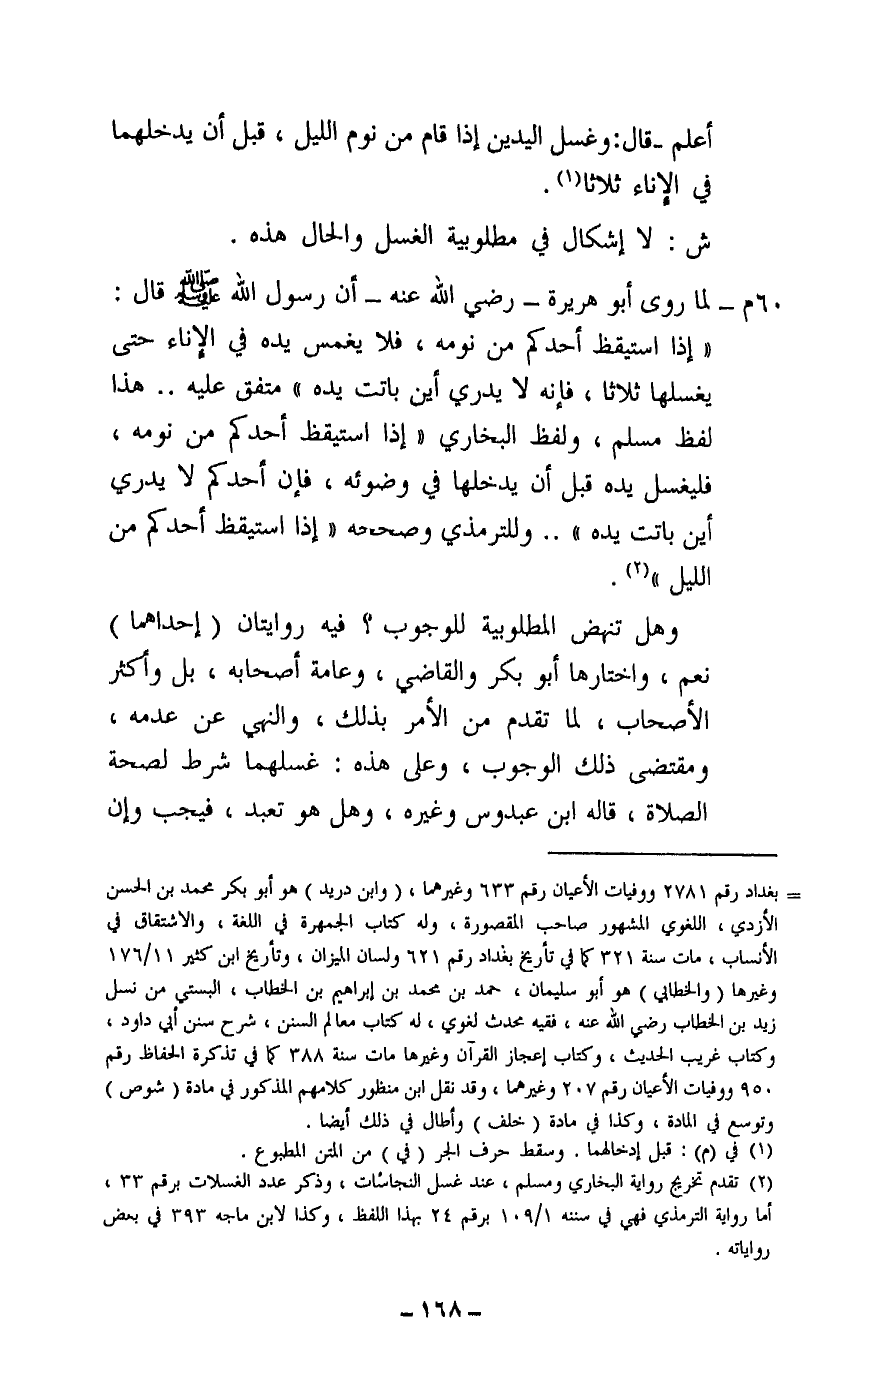 أعلم ـ قال: وغسل اليدين إذا قام من نوم الليل ، قبل أن يدخلهما
في الإناء ثلاثا(١) .
ش : لا إشكال في مطلوبية الغسل والحال هذه .
٦٠م ـ لما روى أبو هريرة ـ رضي الله عنه ـ أن رسول الله ﷺ قال :
« إذا استيقظ أحدكم من نومه ، فلا يغمس يده في الإناء حتى
يغسلها ثلاثا ، فإنه لا يدري أين باتت يده » متفق عليه .. هذا
لفظ مسلم ، ولفظ البخاري « إذا استيقظ أحدكم من نومه ،
فليغسل يده قبل أن يدخلها في وضوئه ، فإن أحدكم لا يدري
أين باتت يده » .. وللترمذي وصححه « إذا استيقظ أحدكم من
الليل »(٢) .
وهل تنهض المطلوبية للوجوب ؟ فيه روايتان ( إحداهما )
نعم ، واختارها أبو بكر والقاضي ، وعامة أصحابه ، بل وأكثر
الأصحاب ، لما تقدم من الأمر بذلك ، والنهي عن عدمه ،
ومقتضى ذلك الوجوب ، وعلى هذه : غسلهما شرط لصحة
الصلاة ، قاله ابن عبدوس وغيره ، وهل هو تعبد ، فيجب وإن
= بغداد رقم ٢٧٨١ ووفيات الأعيان رقم ٦٣٣ وغيرهما ، ( وابن دريد ) هو أبو بكر محمد بن الحسن
الأزدي ، اللغوي المشهور صاحب المقصورة ، وله كتاب الجمهرة في اللغة ، والاشتقاق في
الأنساب ، مات سنة ٣٢١ كما في تأريخ بغداد رقم ٦٢١ ولسان الميزان ، وتأريخ ابن كثير ١٧٦/١١
وغيرها ( والخطابي ) هو أبو سليمان ، حمد بن محمد بن إبراهيم بن الخطاب ، البستي من نسل
زيد بن الخطاب رضي الله عنه ، فقيه محدث لغوي ، له كتاب معالم السنن ، شرح سنن أبي داود ،
وكتاب غريب الحديث ، وكتاب إعجاز القرآن وغيرها مات سنة ٣٨٨ كما في تذكرة الحفاظ رقم
٩٥٠ ووفيات الأعيان رقم ٢٠٧ وغيرهما ، وقد نقل ابن منظور كلامهم المذكور في مادة ( شوص )
وتوسع في المادة ، وكذا في مادة ( خلف ) وأطال في ذلك أيضا .
(١) في (م) : قبل إدخالهما . وسقط حرف الجر ( في ) من المتن المطبوع .
(٢) تقدم تخريج رواية البخاري ومسلم ، عند غسل النجاسات ، وذكر عدد الغسلات برقم ٣٣ ،
أما رواية الترمذي فهي في سننه ١٠٩/١ برقم ٢٤ بهذا اللفظ ، وكذا لابن ماجه ٣٩٣ في بعض
رواياته .
ـ ١٦٨ ـ